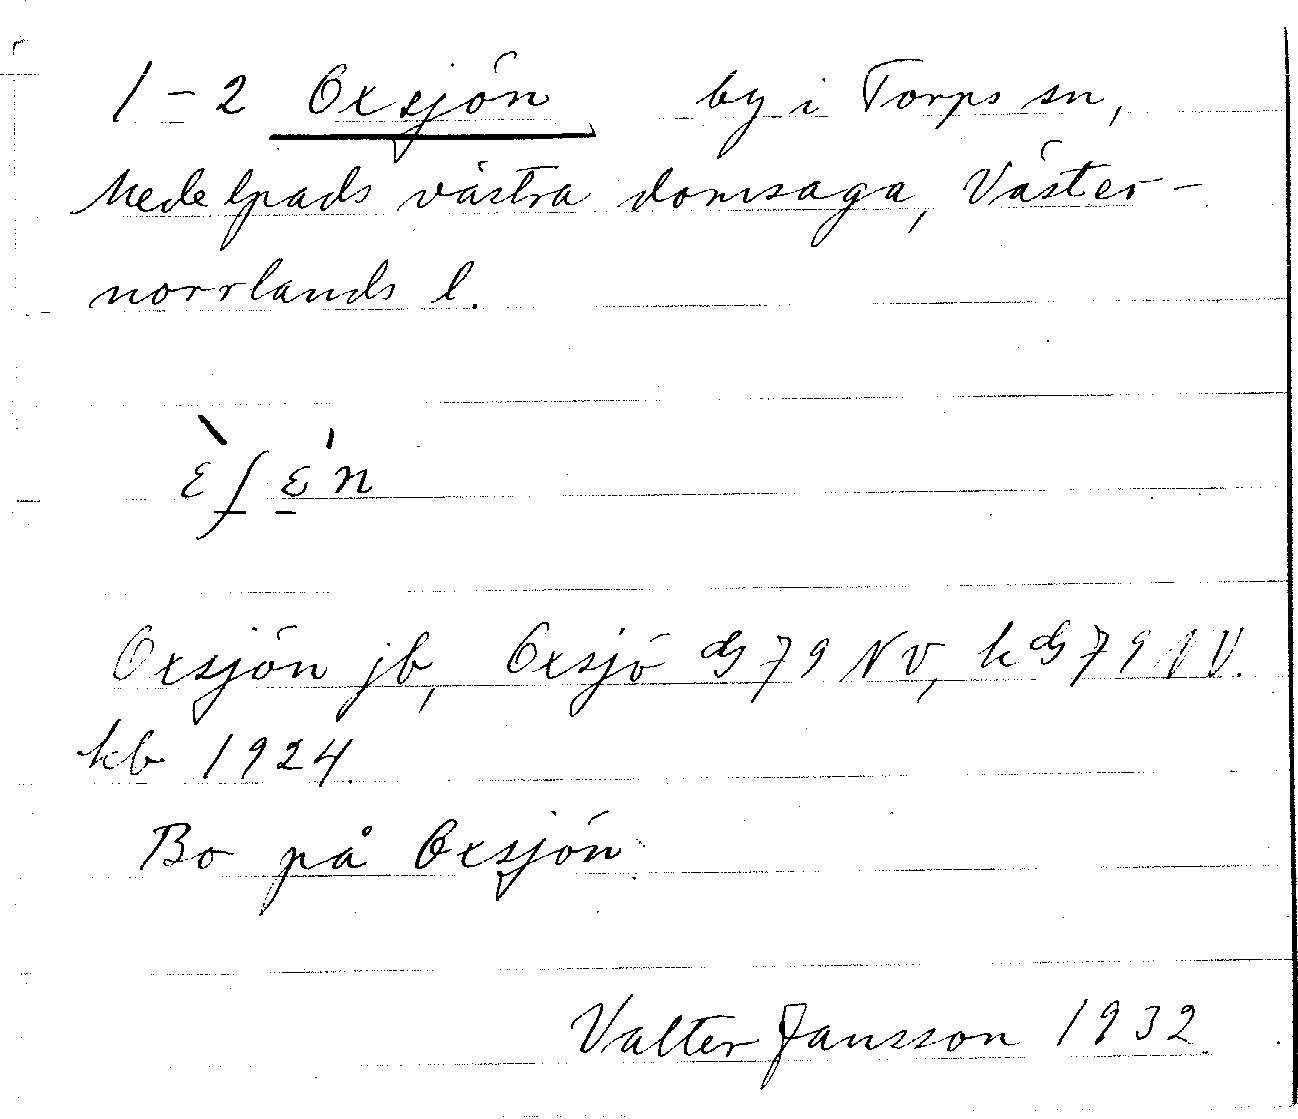 1-2 Oxsjön by i Torps sn,
Medelpads västra domsaga, Väster-
norrlands l.
Oxsjön jb, Oxsjö 79 NV, k 79 NV.
kb 1924.
Bo på Oxsjön.
Valter Jansson 1932.